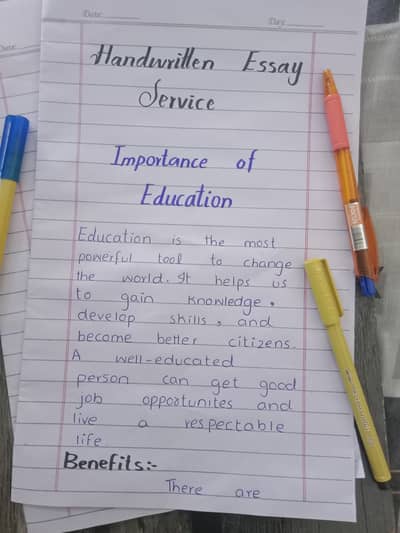 Date
Day
Date
Handwritten Essay
Service
Importance of
Education
Education is the most
powerful tool to change
the world. It helps us
to gain knowledge,
develop skills, and
become better citizens.
A well-educated
person can get good
job opportunites and
live a respectable
life
Benefits:-
There are